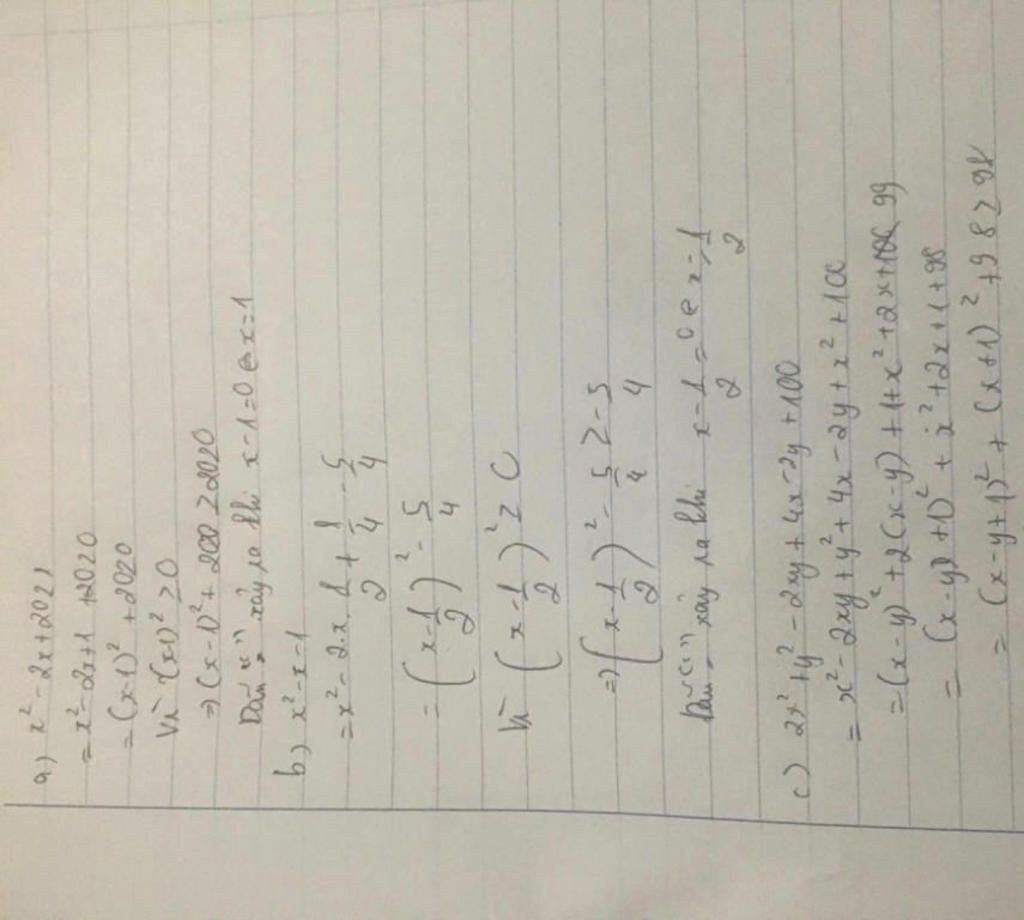 a) x² - 2x + 2021
= x² - 2x + 1 + 2020
= (x-1)² + 2020
Vì (x-1)² ≥ 0
⇒ (x-1)² + 2020 ≥ 2020
Dấu "=" xảy ra khi x-1=0 ⇔ x=1
b) x² - x - 1
= x² - 2.x.1/2 + 1/4 - 5/4
= (x - 1/2)² - 5/4
Vì (x - 1/2)² ≥ 0
⇒ (x - 1/2)² - 5/4 ≥ -5/4
Dấu "=" xảy ra khi x - 1/2 = 0 ⇔ x = 1/2
c) 2x² + y² - 2xy + 4x - 2y + 100
= x² - 2xy + y² + 4x - 2y + x² + 100
= (x-y)² + 2(x-y) + 1 + x² + 2x + 99
= (x-y+1)² + x² + 2x + 1 + 98
= (x-y+1)² + (x+1)² + 98 ≥ 98